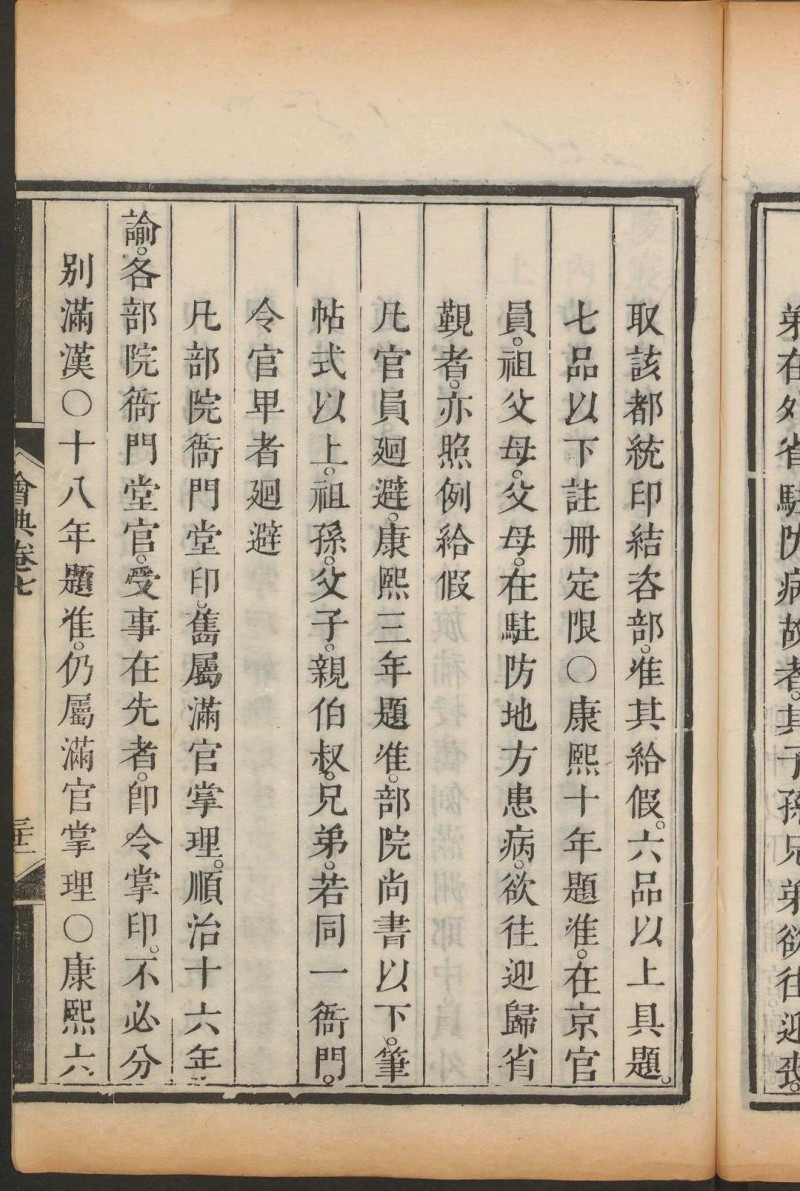 弟在外省駐防病故者。其子孫兄弟欲往迎喪。
取該都統印結咨部。准其給假。六品以上具題。
七品以下註冊定限〇康熙十年題准。在京官
員。祖父母。父母。在駐防地方患病。欲往迎歸省
覲者。亦照例給假
凡官員迴避。康熙三年題准。部院尚書以下。筆
帖式以上。祖孫。父子。親伯叔。兄弟。若同一衙門。
令官卑者迴避
凡部院衙門堂印。舊屬滿官掌理。順治十六年
諭。各部院衙門堂官。受事在先者。卽令掌印。不必分
別滿漢〇十八年題准。仍屬滿官掌理〇康熙六
會典卷七